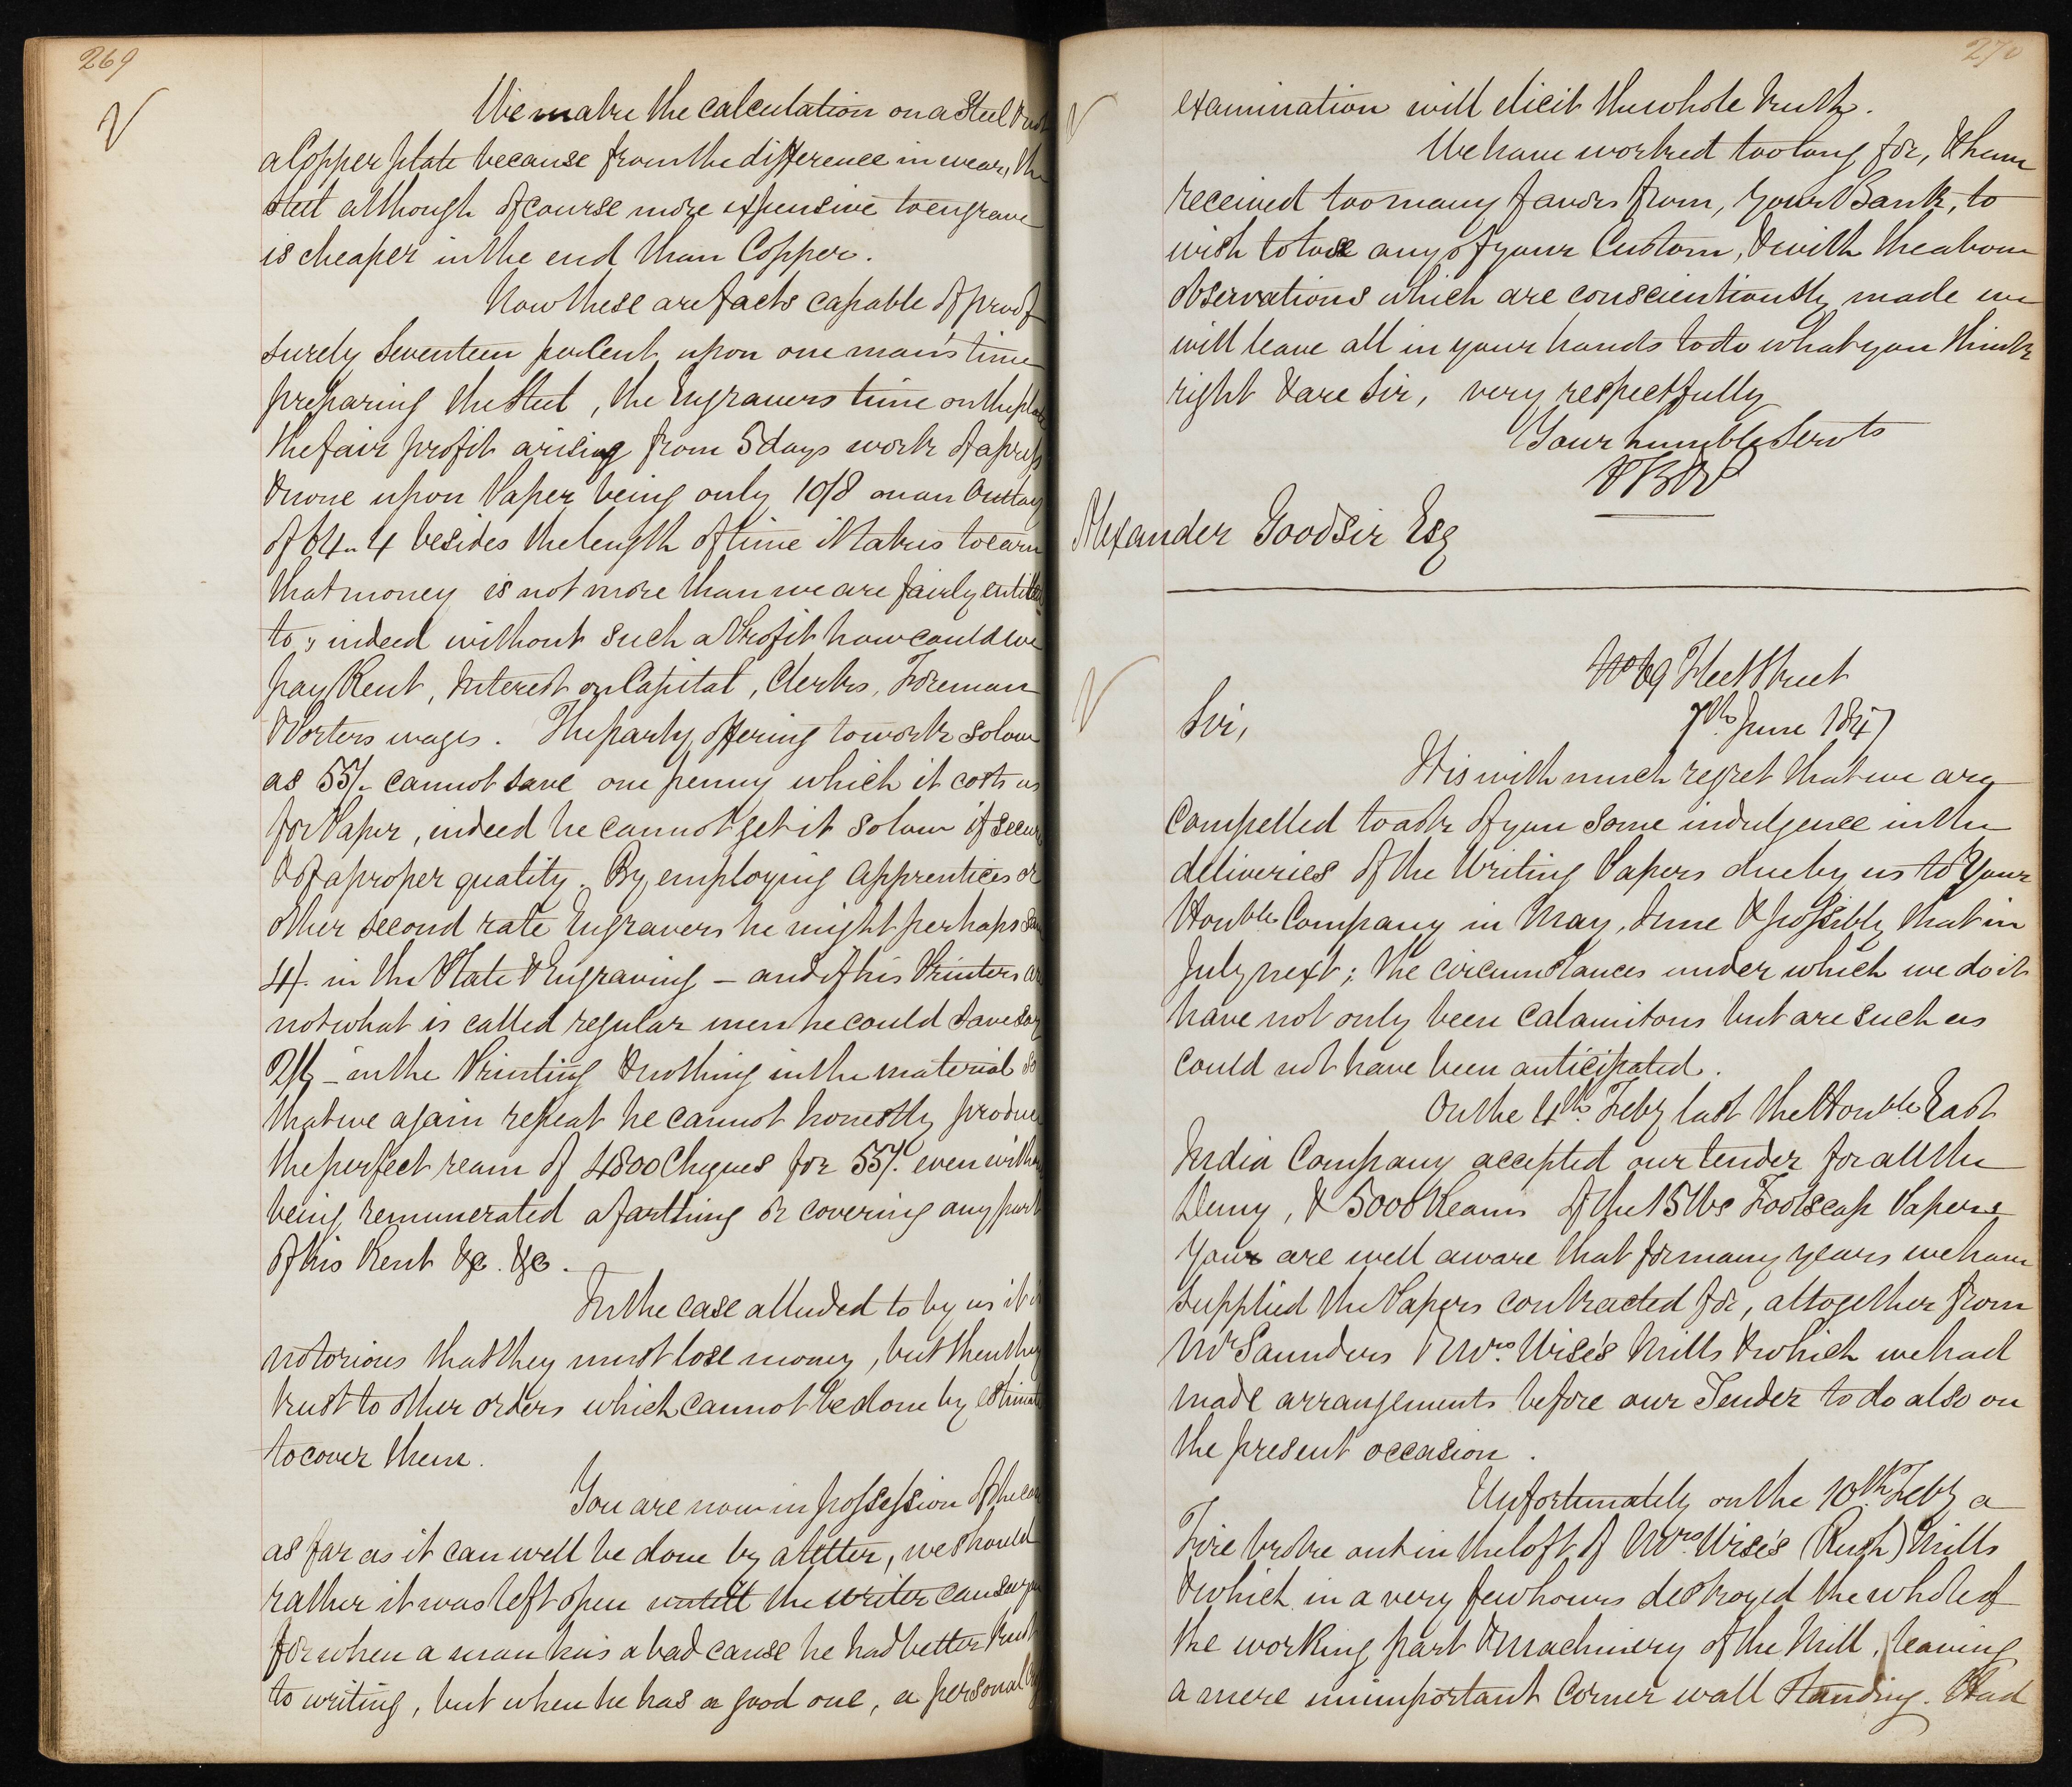 269
We make the calculation on a Steel & not
a Copper plate because from the difference in wear, the
steel although of course more expensive to engrave
is cheaper in the end than Copper.
Now these are facts capable of proof
surely Seventeen per Cent, upon one man's time
preparing the Steel, the Engravers time on the plate
the fair profit arising from 5 days work of a press
& none upon Paper being only 10/8 on an Outlay
of 64..4 besides the length of time it takes to earn
that money is not more than we are fairly entitled
to, indeed without such a Profit how could we
pay Rent, Interest on Capital, Clerks, Foreman
& Porters wages. The party offering to work so low
as 55/- cannot save one penny which it costs us
for Paper, indeed he cannot get it so low if secure
& of a proper quality. By employing Apprentices or
other second rate Engravers he might perhaps save
4/- in the Plate & Engraving – and if his Printers are
not what is called regular men he could save say
2/6 – in the Printing & nothing in the material so
that we again repeat he cannot honestly produce
the perfect ream of 4800 Cheques for 55/- even without
being remunerated a farthing or covering any part
of his Rent &c. &c.
In the case alluded to by us it is
notorious that they must lose money, but then they
trust to other orders which cannot be done by estimate
to cover them.
You are now in possession of the case
as far as it can well be done by a letter, we should
rather it was left open untill the writer can see you
for when a man has a bad cause he had better trust
to writing, but when he has a good one, a personal
270
examination will elicit the whole truth.
We have worked too long for, & have
received too many favors from, your Bank, to
wish to lose any of your Custom, & with the above
observations which are conscientiously made we
will leave all in your hands to do what you think
right & are Sir, very respectfully
Your humble Servts
Alexander Goodsir Esq
No 69 Fleet Street
7th June 1847
Sir,
It is with much regret that we are
compelled to ask of you some indulgence in the
deliveries of the Writing Papers due by us to Your
Honble Company in May, June & possibly that in
July next; the circumstances under which we do it
have not only been calamitous but are such as
could not have been anticipated.
On the 4th Feby last the Honble East
India Company accepted our tender for all the
Demy, & 5000 Reams of the 15 lbs Foolscap Papers
You are well aware that for many years we have
supplied the Papers contracted for, altogether from
Mr Saunders & Mrs Wise's Mills & which we had
made arrangements before our Tender to do also on
the present occasion.
Unfortunately on the 10th Feby a
Fire broke out in the loft of Mrs Wise's (Rush) Mills
& which in a very few hours destroyed the whole of
the working part & machinery of the Mill, leaving
a mere unimportant Corner wall standing. Had